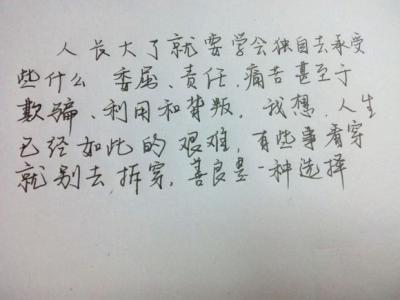 人长大了就要学会独自去承受
些什么 委屈、责任、痛苦甚至于
欺骗、利用和背叛。我想,人生
已经如此的艰难,有些事看穿
就别去拆穿,善良是一种选择